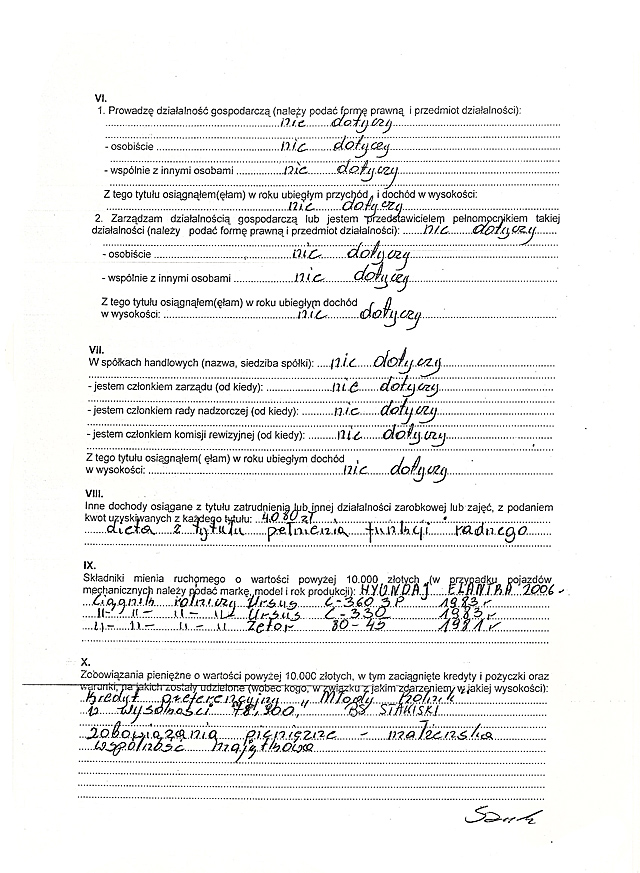 VI.
1. Prowadzę działalność gospodarczą (należy podać formę prawną i przedmiot działalności):
nie dotyczy
- osobiście nie dotyczy
- wspólnie z innymi osobami nie dotyczy
Z tego tytułu osiągnąłem(ęłam) w roku ubiegłym przychód i dochód w wysokości:
nie dotyczy
2. Zarządzam działalnością gospodarczą lub jestem przedstawicielem pełnomocnikiem takiej
działalności (należy podać formę prawną i przedmiot działalności): nie dotyczy
- osobiście nie dotyczy
- wspólnie z innymi osobami nie dotyczy
Z tego tytułu osiągnąłem(ęłam) w roku ubiegłym dochód
w wysokości: nie dotyczy
VII.
W spółkach handlowych (nazwa, siedziba spółki): nie dotyczy
- jestem członkiem zarządu (od kiedy): nie dotyczy
- jestem członkiem rady nadzorczej (od kiedy): nie dotyczy
- jestem członkiem komisji rewizyjnej (od kiedy): nie dotyczy
Z tego tytułu osiągnąłem( ęłam) w roku ubiegłym dochód
w wysokości: nie dotyczy
VIII.
Inne dochody osiągane z tytułu zatrudnienia lub innej działalności zarobkowej lub zajęć, z podaniem
kwot uzyskiwanych z każdego tytułu: 4080 zł
dieta z tytułu pełnienia funkcji radnego
IX.
Składniki mienia ruchomego o wartości powyżej 10.000 złotych (w przypadku pojazdów
mechanicznych należy podać markę, model i rok produkcji): HYUNDAJ ELANTRA 2006
Ciągnik rolniczy Ursus C-360 3P 1983 r
-11- -11- -11- Ursus C-330 1983 r
-11- -11- -11- Zetor 80-45 1981 r
X.
Zobowiązania pieniężne o wartości powyżej 10.000 złotych, w tym zaciągnięte kredyty i pożyczki oraz
warunki, na jakich zostały udzielone (wobec kogo, w związku z jakim zdarzeniem, w jakiej wysokości):
Kredyt preferencyjny "Młody Rolnik"
w wysokości 78,300, BS STAWISKI
zobowiązania pieniężne - małżeńska
wspólność majątkowa